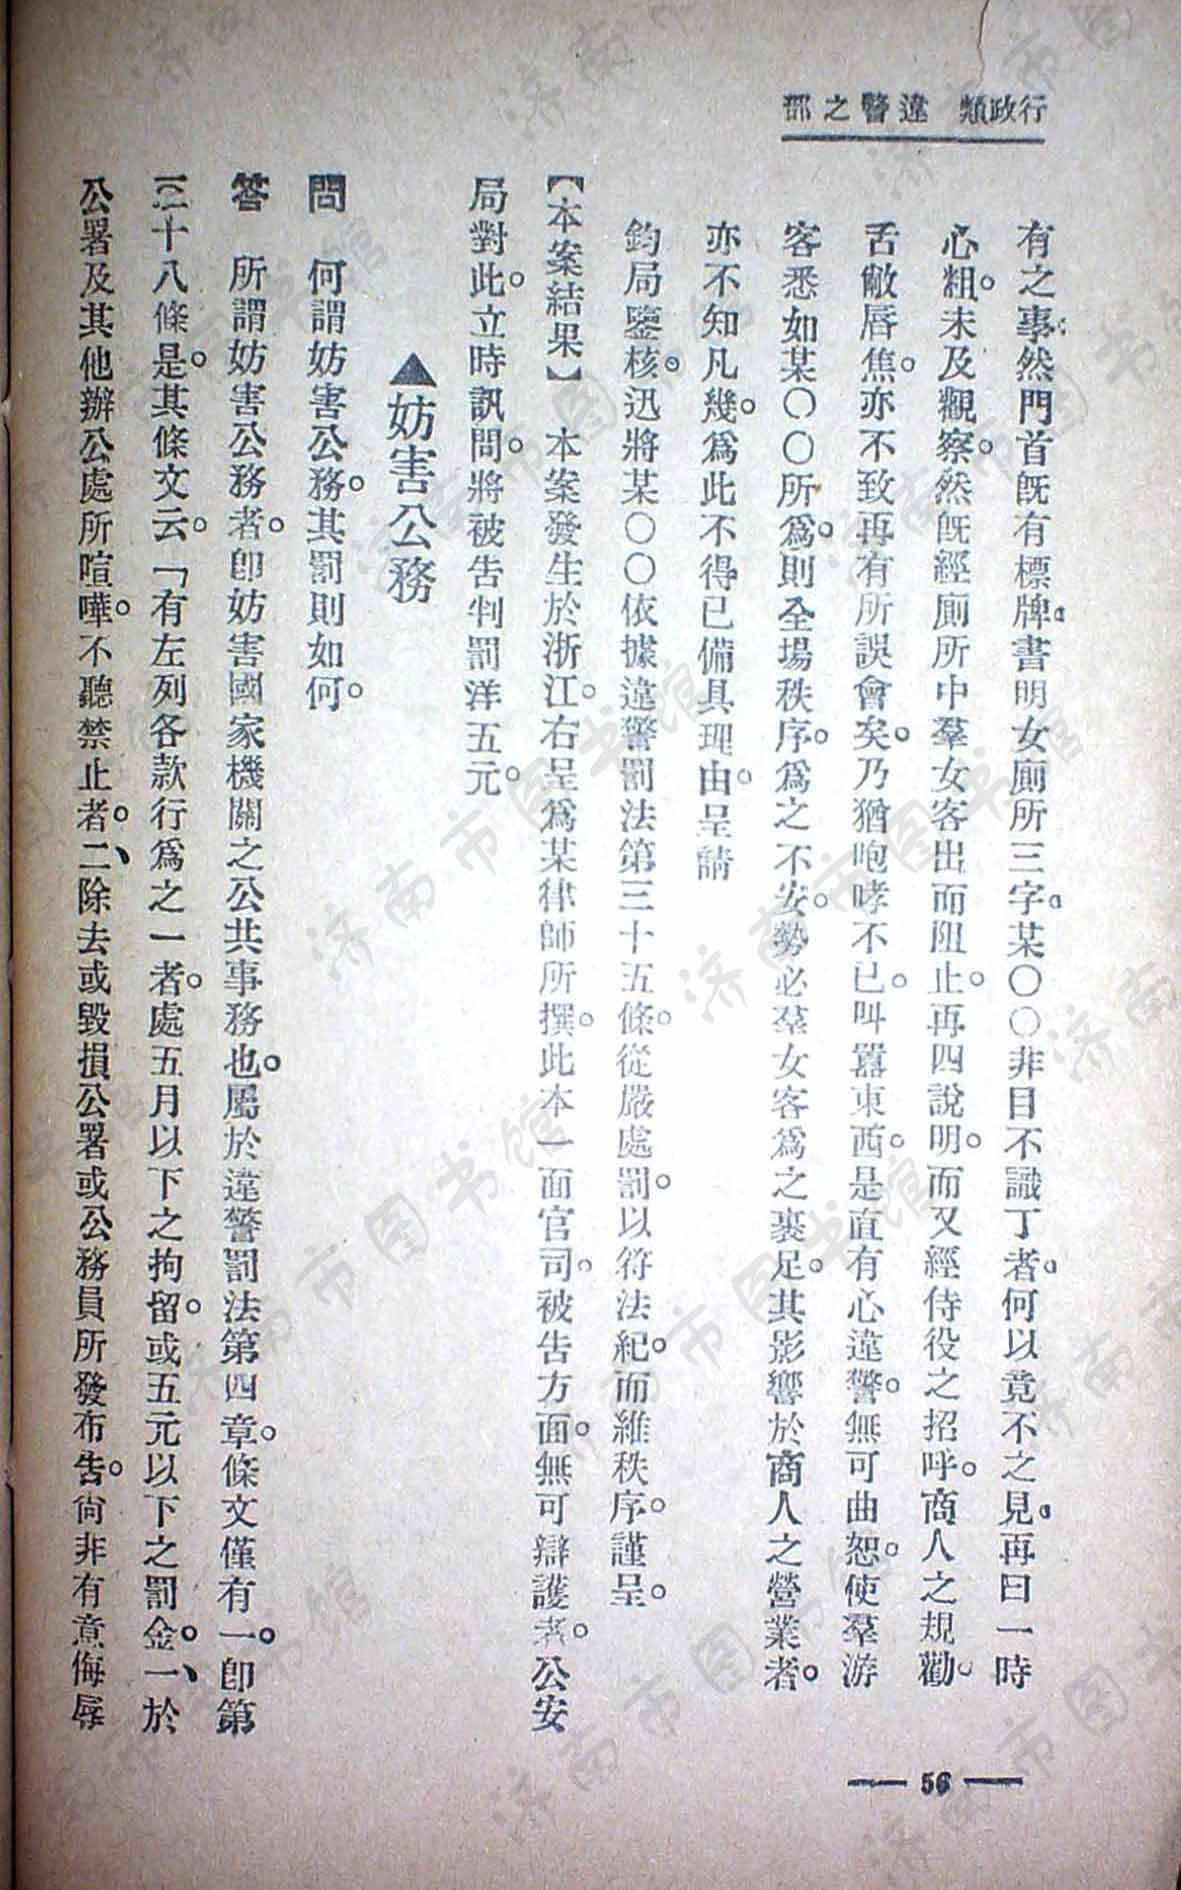 行政類 違警之部
有之事。然門首既有標牌。書明女廁所三字。某〇〇非目不識丁者。何以竟不之見。再曰一時
心粗。未及觀察。然既經廁所中羣女客出而阻止。再四說明。而又經侍役之招呼。商人之規勸。
舌敝唇焦。亦不致再有所誤會矣。乃猶咆哮不已。叫囂東西。是直有心違警。無可曲恕。使羣游
客悉如某〇〇所爲。則全場秩序。爲之不安。勢必羣女客爲之裹足。其影響於商人之營業者。
亦不知凡幾。爲此不得已備具理由。呈請
鈞局鑒核。迅將某〇〇依據違警罰法第三十五條。從嚴處罰。以符法紀。而維秩序。謹呈。
【本案結果】 本案發生於浙江。右呈爲某律師所撰。此本一面官司。被告方面。無可辯護者。公安
局對此。立時訊問。將被告判罰洋五元。
▲妨害公務
問 何謂妨害公務。其罰則如何。
答 所謂妨害公務者。卽妨害國家機關之公共事務也。屬於違警罰法第四章。條文僅有一。卽第
三十八條是。其條文云。「有左列各款行爲之一者。處五月以下之拘留。或五元以下之罰金。一、於
公署及其他辦公處所喧嘩。不聽禁止者。二、除去或毀損公署或公務員所發布告。尙非有意侮辱
— 56 —
济南市图书馆